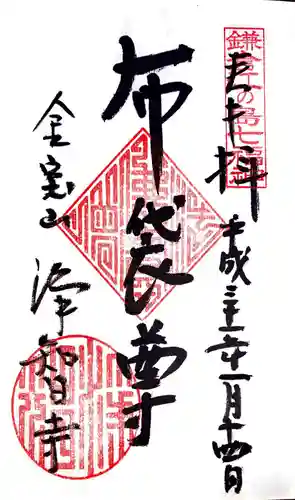 鎌倉江の島七福神
奉拝
平成三十一年一月十四日
布袋尊
金宝山
浄智寺